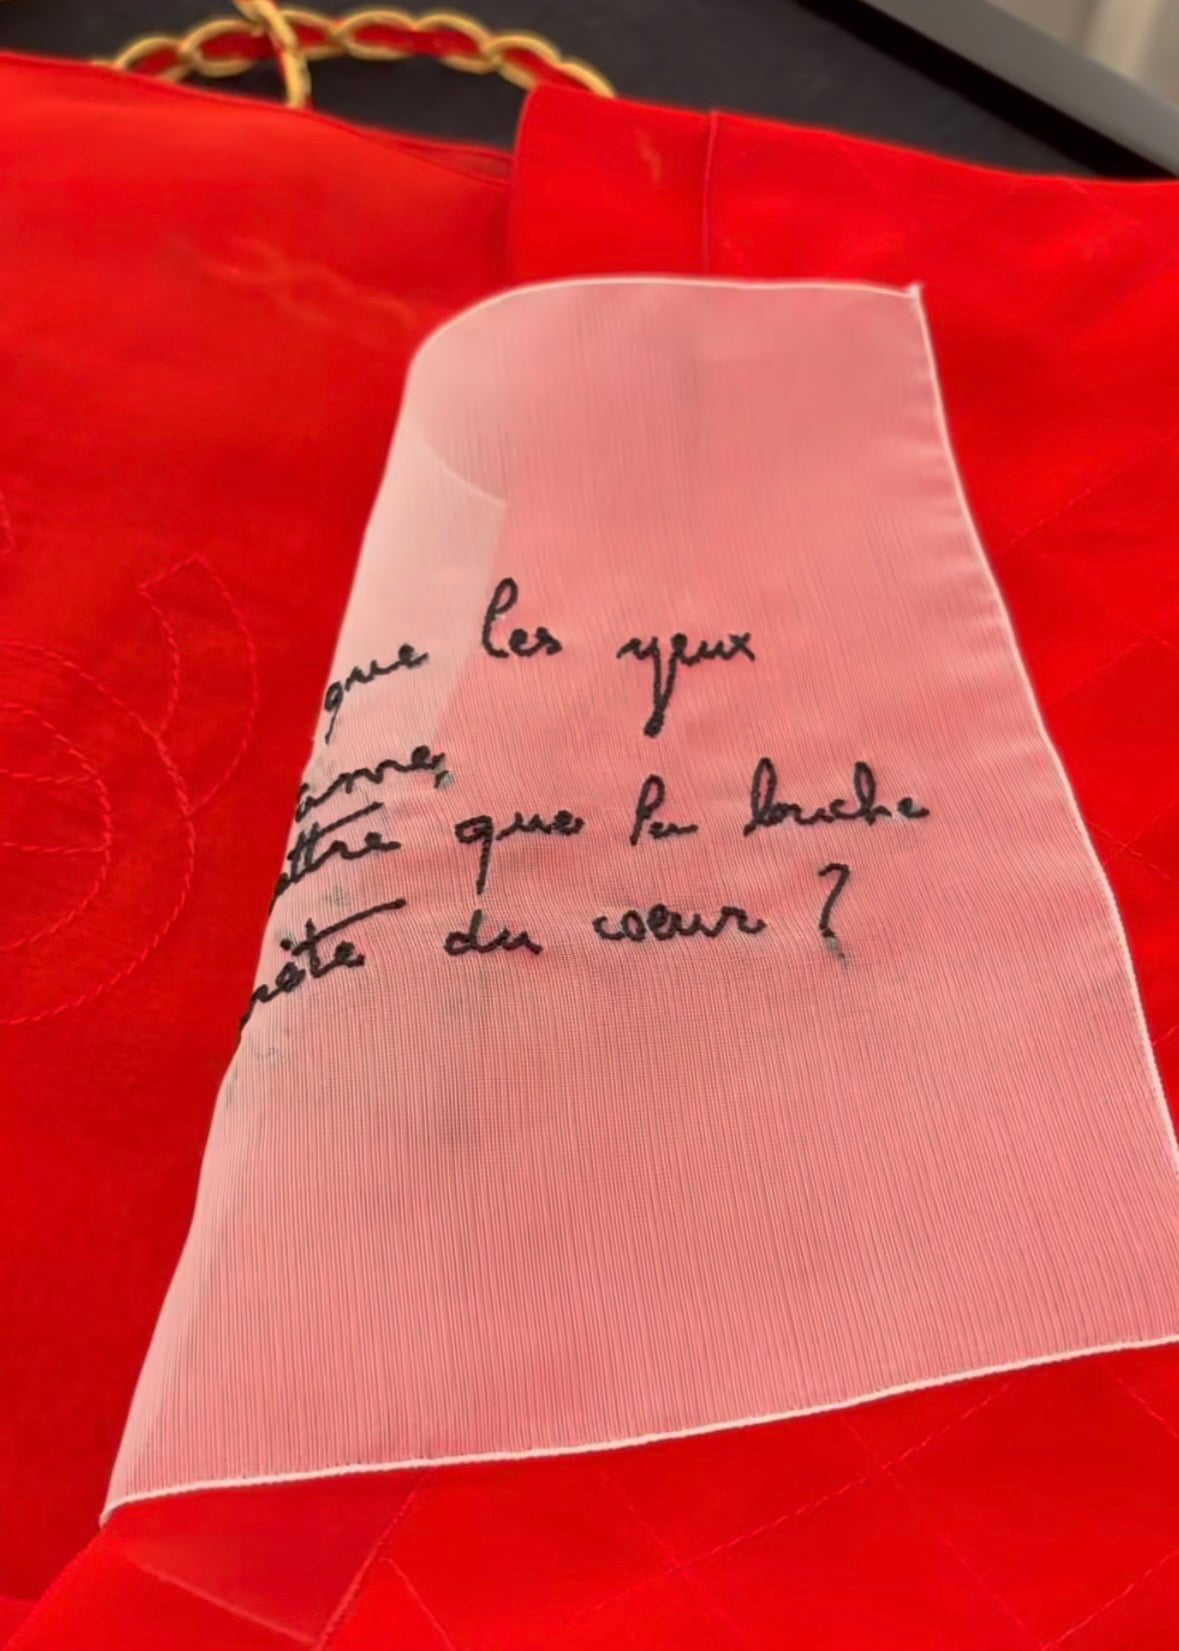 que les yeux
âme,
ettre que la bouche
rète du cœur ?